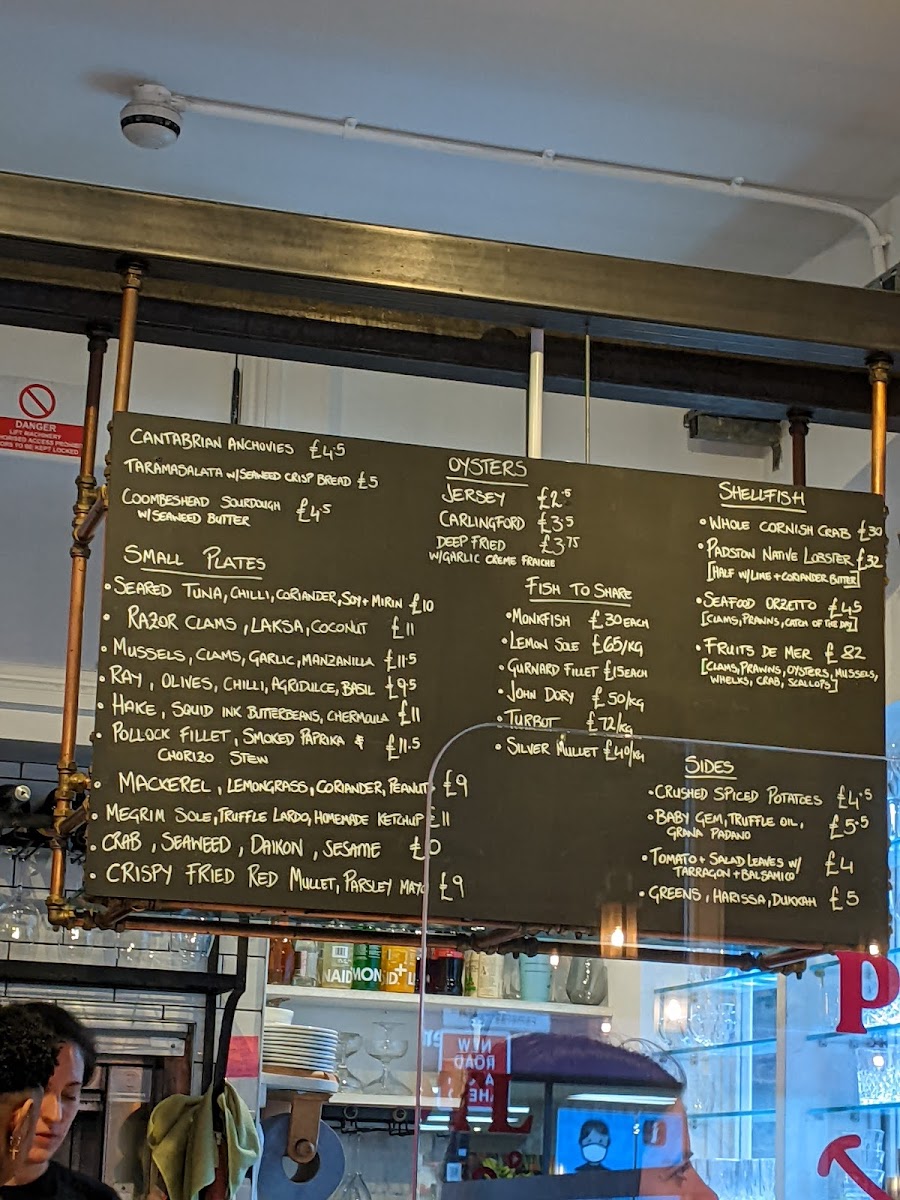 DANGER
LIFT MACHINERY
CANTABRIAN ANCHOVIES £4.5
TARAMASALATA W/SEAWEED CRISP BREAD £5
COOMBESHEAD SOURDOUGH £4.5
W/SEAWEED BUTTER
SMALL PLATES
• SEARED TUNA, CHILLI, CORIANDER, SOY + MIRIN £10
• RAZOR CLAMS, LAKSA, COCONUT £11
• MUSSELS, CLAMS, GARLIC, MANZANILLA £11.5
• RAY, OLIVES, CHILLI, AGRIDULCE, BASIL £9.5
• HAKE, SQUID INK BUTTERBEANS, CHERMOULA £11
• POLLOCK FILLET, SMOKED PAPRIKA & £11.5
CHORIZO STEW
• MACKEREL, LEMONGRASS, CORIANDER, PEANUT £9
• MEGRIM SOLE, TRUFFLE LARDO, HOMEMADE KETCHUP £11
• CRAB, SEAWEED, DAIKON, SESAME
• CRISPY FRIED RED MULLET, PARSLEY MAYO £9
OYSTERS
JERSEY £2.5
CARLINGFORD £3.5
DEEP FRIED £3.75
W/GARLIC CREME FRAICHE
FISH TO SHARE
• MONKFISH £30 EACH
• LEMON SOLE £65/KG
• GURNARD FILLET £15 EACH
• JOHN DORY £50/KG
• TURBOT £72/KG
• SILVER MULLET £40/KG
SHELLFISH
• WHOLE CORNISH CRAB £30
• PADSTON NATIVE LOBSTER £32
[HALF W/LIME + CORIANDER BUTTER]
• SEAFOOD ORZETTO £45
[CLAMS, PRAWNS, CATCH OF THE DAY]
• FRUITS DE MER £82
[CLAMS, PRAWNS, OYSTERS, MUSSELS,
WHELKS, CRAB, SCALLOPS]
SIDES
• CRUSHED SPICED POTATOES £4.5
• BABY GEM, TRUFFLE OIL, £5.5
GRANA PADANO
• TOMATO + SALAD LEAVES W/ £4
TARRAGON + BALSAMICO
• GREENS, HARISSA, DUKKAH £5